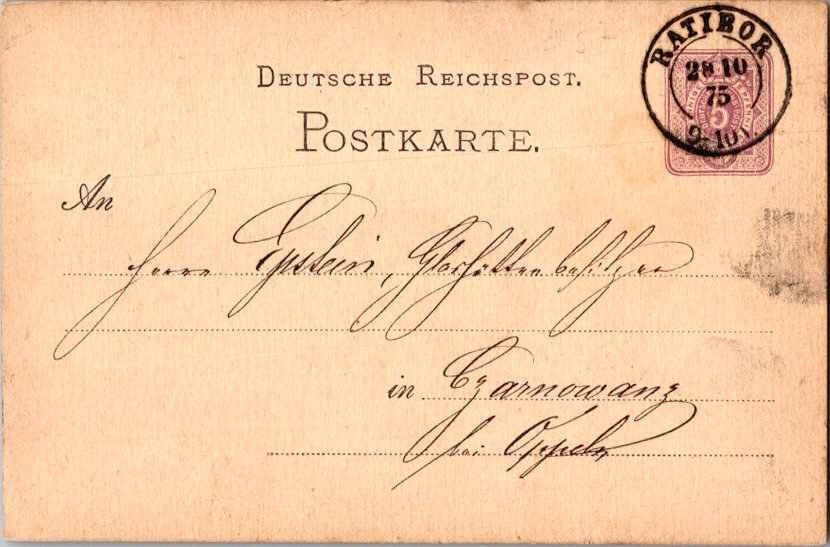 DEUTSCHE REICHSPOST.
POSTKARTE.
RATIBOR
28 10
75
9-10 V
5
An
Herrn Epstein, Glashüttenbesitzer
in Czarnowanz
bei Oppeln